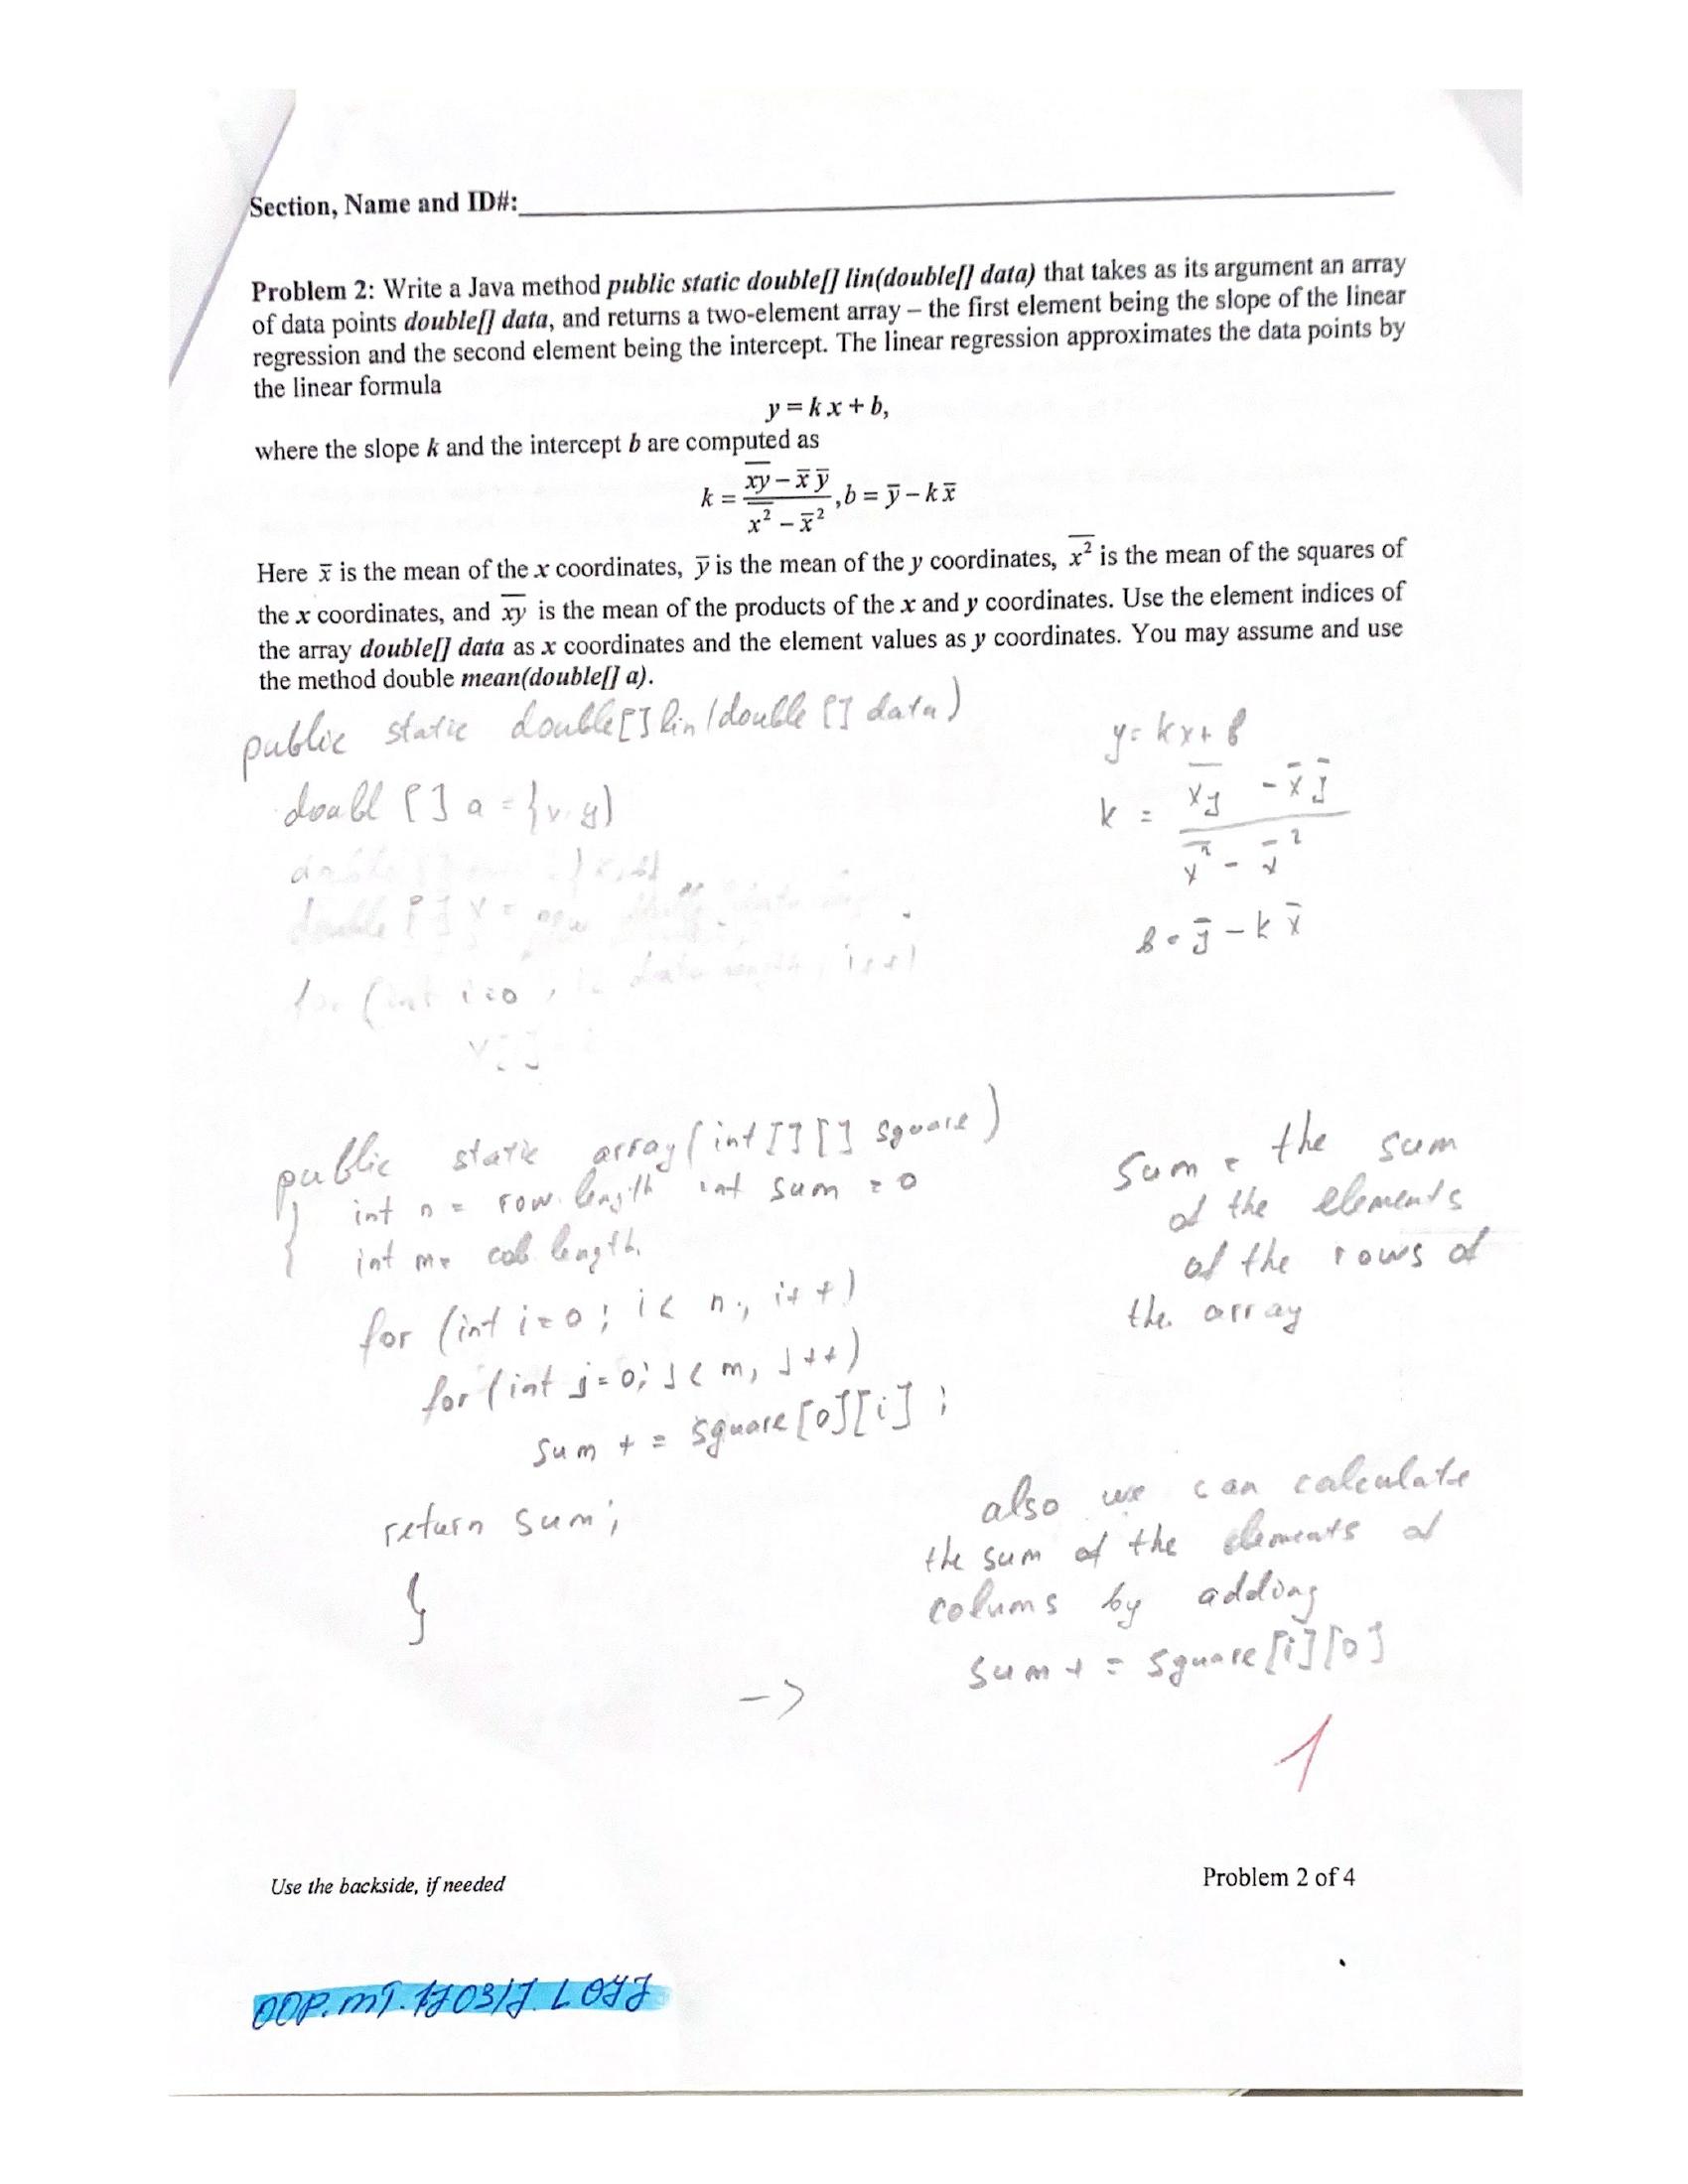 Section, Name and ID#:
Problem 2: Write a Java method public static double[] lin(double[] data) that takes as its argument an array
of data points double[] data, and returns a two-element array – the first element being the slope of the linear
regression and the second element being the intercept. The linear regression approximates the data points by
the linear formula
y = k x + b,
where the slope k and the intercept b are computed as
k = (x̅y̅ − x̄ ȳ) / (x̅²̅ − x̄²), b = ȳ − k x̄
Here x̄ is the mean of the x coordinates, ȳ is the mean of the y coordinates, x̅²̅ is the mean of the squares of
the x coordinates, and x̅y̅ is the mean of the products of the x and y coordinates. Use the element indices of
the array double[] data as x coordinates and the element values as y coordinates. You may assume and use
the method double mean(double[] a).
public static double[] lin(double [] data)
doubl [] a = {x, y)
double [] x = new
for (int i=0, i< data length, i++)
y = kx + b
k = (x̅y̅ - x̄ ȳ) / (x̅²̅ - x̄²)
b = ȳ - k x̄
public static array(int [][] square)
{ int n = row. length int sum = 0
int m = col. length.
for (int i=0; i< n; i++)
for (int j=0; j< m, j++)
sum += square[0][i];
return sum;
}
sum = the sum
of the elements
of the rows of
the array
also we can calculate
the sum of the elements of
colums by adding
sum += square[i][0]
->
1
Use the backside, if needed
Problem 2 of 4